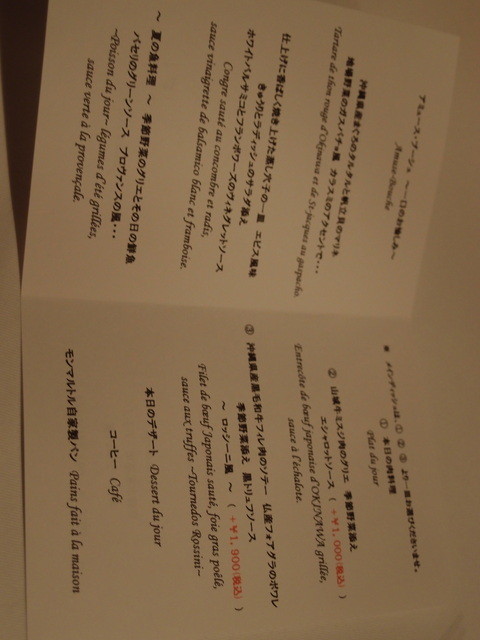 アミューズ・ブーシュ ～一口のお愉しみ～
Amuse-Bouche
沖縄県産まぐろのタルタルと帆立貝のマリネ
地場野菜のガスパチョ風 カラスミのアクセントで・・・
Tartare de thon rouge d'Okinawa et de St-Jacques au gaspacho.
仕上げに香ばしく焼き上げた蒸し穴子の一皿 エピス風味
きゅうりとラディッシュのサラダ添え
ホワイトバルサミコとフランボワーズのヴィネグレットソース
Congre sauté au concombre et radis,
sauce vinaigrette de balsamico blanc et framboise.
～ 夏の魚料理 ～ 季節野菜のグリエとその日の鮮魚
パセリのグリーンソース プロヴァンスの風・・・
~Poisson du jour~ légumes d'été grillées,
sauce verte à la provençale,
※ メインディッシュは、① ② ③ より一皿お選びくださいませ。
① 本日の肉料理
Plat du jour
② 山城牛ミスジ肉のグリエ 季節野菜添え
エシャロットソース ( +￥1,000(税込) )
Entrecôte de bœuf japonaise d'OKINAWA grillée,
sauce à l'échalote.
③ 沖縄県産黒毛和牛フィレ肉のソテー 仏産フォアグラのポワレ
季節野菜添え 黒トリュフソース
～ ロッシーニ風 ～ ( +￥1,900(税込) )
Filet de bœuf Japonais sauté, foie gras poêlé,
sauce aux truffes ~Tournedos Rossini~
本日のデザート Dessert du jour
コーヒー Café
モンマルトル自家製パン Pains fait à la maison